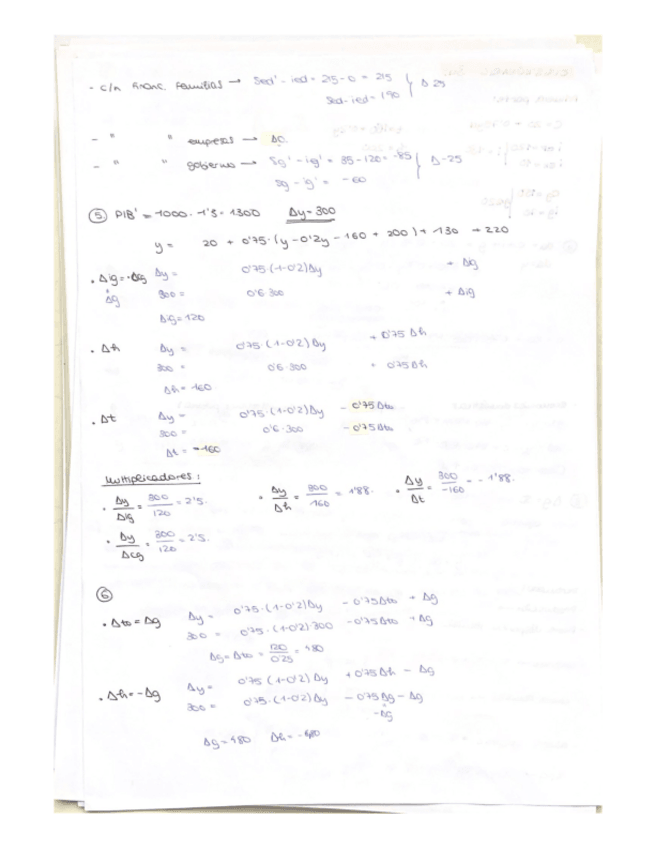 - c/n Financ. Familias → Sed' - ied = 215 - 0 = 215 } Δ 25
Sed - ied = 190
- " " empresas → Δ0.
- " " gobierno → Sg' - ig' = 35 - 120 = -85 } Δ-25
Sg - ig' = -60
⑤ PIB' = 1000 · 1'3 = 1300 Δy = 300
y = 20 + 0'75 · (y - 0'2y - 160 + 200) + 130 + 220
· Δig = Δcg Δy = 0'75 · (1-0'2) Δy + Δg
Δg 300 = 0'6 · 300 + Δig
Δig = 120
· Δh Δy = 0'75 · (1-0'2) Δy + 0'75 Δh
300 = 0'6 · 300 + 0'75 Δh
Δh = 160
· Δt Δy = 0'75 · (1-0'2) Δy - 0'75 Δto
300 = 0'6 · 300 - 0'75 Δto
Δt = -160
Multiplicadores:
· Δy/Δig = 300/120 = 2'5. · Δy/Δh = 300/160 = 1'88. · Δy/Δt = 300/-160 = -1'88.
· Δy/Δcg = 300/120 = 2'5.
⑥
· Δto = Δg Δy = 0'75 · (1-0'2) Δy - 0'75 Δto + Δg
300 = 0'75 · (1-0'2) 300 - 0'75 Δto + Δg
Δg = Δto = 120/0'25 = 480
· Δh = -Δg Δy = 0'75 (1-0'2) Δy + 0'75 Δh - Δg
300 = 0'75 · (1-0'2) Δy - 0'75 Δg - Δg
-Δg
Δg = 480 Δh = -480